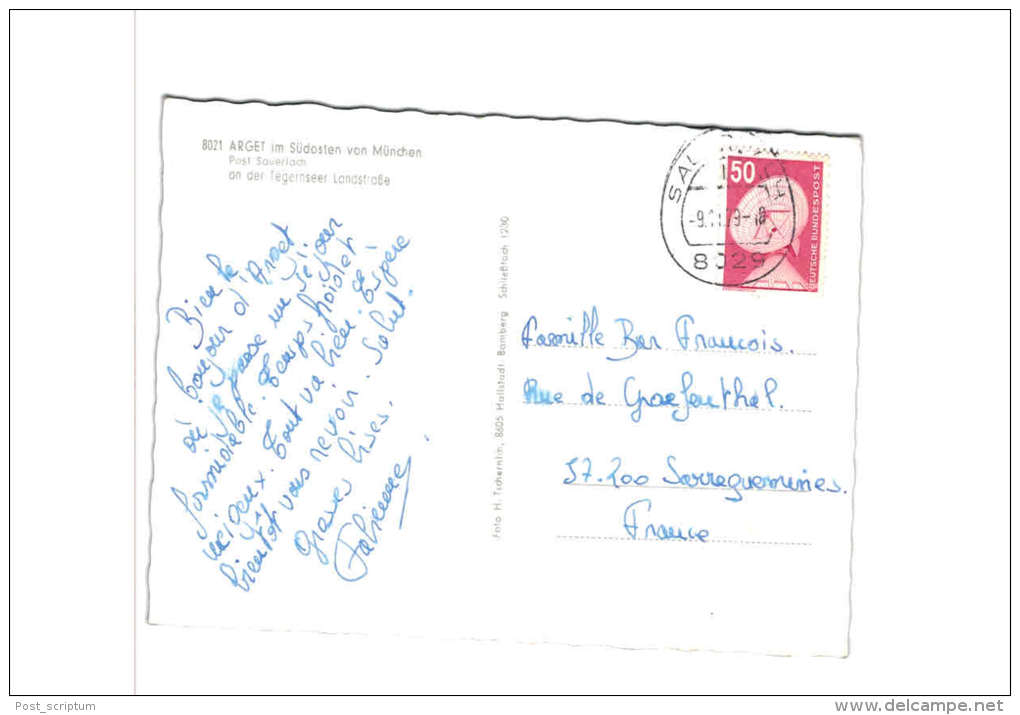 8021 ARGET im Südosten von München
Post Sauerlach
an der Tegernseer Landstraße
Bien le
bonjour d'Arget
où je passe un séjour
formidable. Temps froid et
neigeux. Tout va bien. J'espère
bientôt vous revoir. Salut.
Grosses bises.
Fabienne
Foto H. Tschernitin, 8605 Hallstadt, Bamberg Schließfach 1230
50
DEUTSCHE BUNDESPOST
8029
Famille Bar Francois.
Rue de Graefenthal.
57.200 Sarreguemines.
France
Post_scriptum
delcampe.net